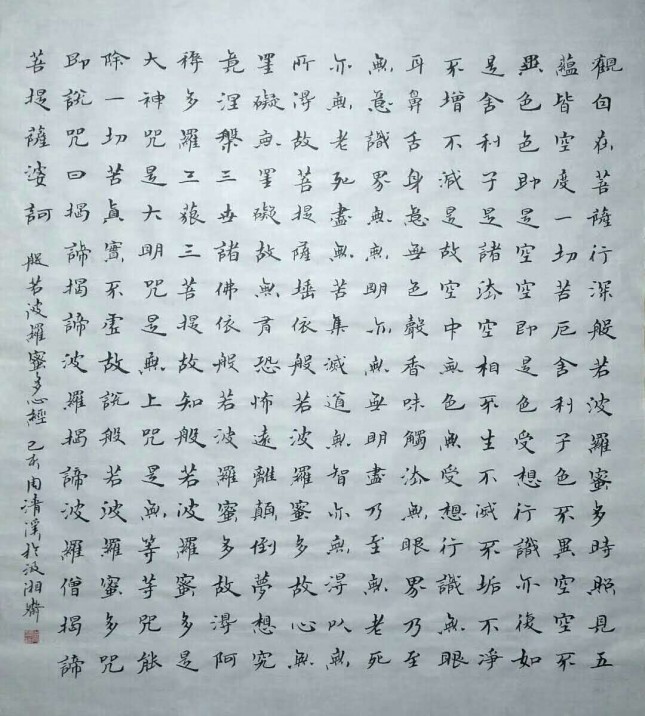 觀自在菩薩行深般若波羅蜜多時照見五
蘊皆空度一切苦厄舍利子色不異空空不
異色色即是空空即是色受想行識亦復如
是舍利子是諸法空相不生不滅不垢不淨
不增不減是故空中無色無受想行識無眼
耳鼻舌身意無色聲香味觸法無眼界乃至
無意識界無無明亦無無明盡乃至無老死
亦無老死盡無苦集滅道無智亦無得以無
所得故菩提薩埵依般若波羅蜜多故心無
罣礙無罣礙故無有恐怖遠離顛倒夢想究
竟涅槃三世諸佛依般若波羅蜜多故得阿
耨多羅三藐三菩提故知般若波羅蜜多是
大神咒是大明咒是無上咒是無等等咒能
除一切苦真實不虛故說般若波羅蜜多咒
即說咒曰揭諦揭諦波羅揭諦波羅僧揭諦
菩提薩婆訶 般若波羅蜜多心經 己亥周清溪於汲湘齋